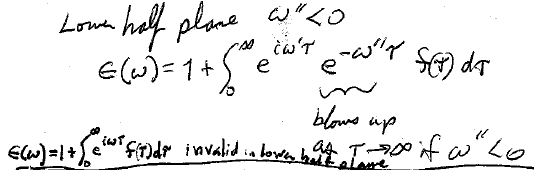 Lower half plane ω''<0
ε(ω)=1+∫₀^∞ e^{iω'τ} e^{-ω''τ} f(τ) dτ
blows up
as τ→∞ if ω''<0
ε(ω)=1+∫₀^∞ e^{iωτ} f(τ)dτ invalid in lower half plane